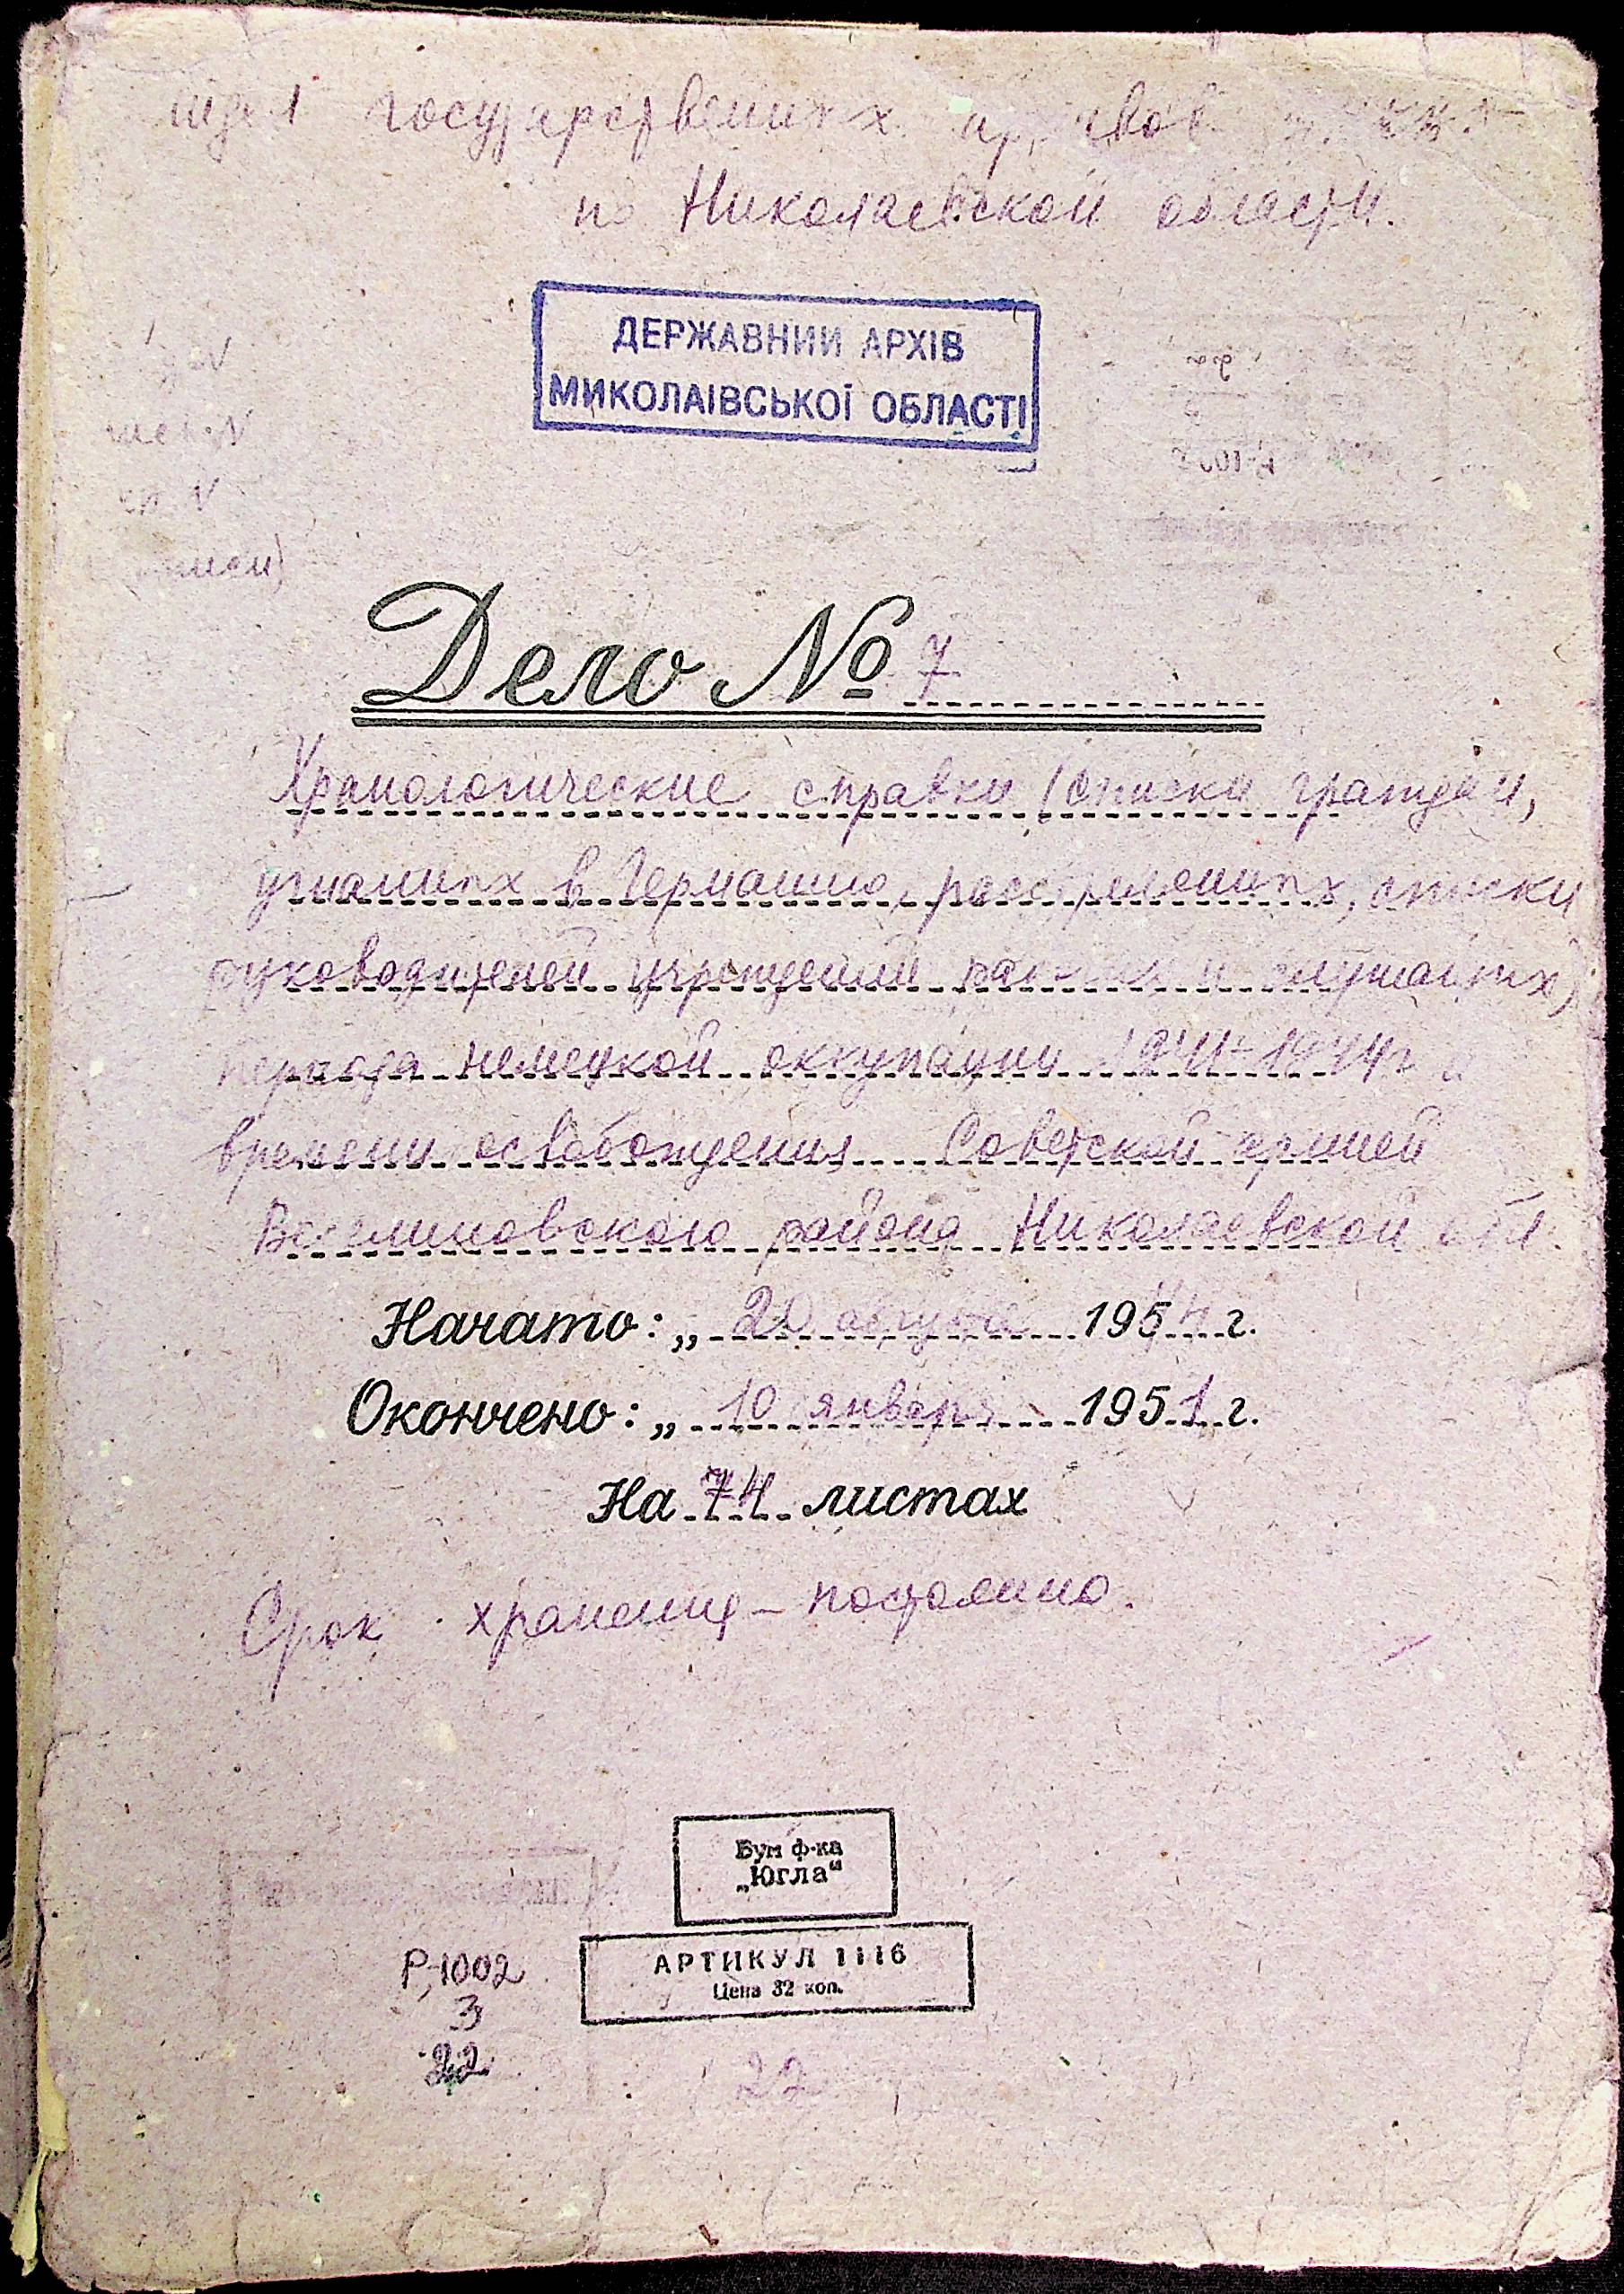 государственных архивов
по Николаевской области.
ДЕРЖАВНИЙ АРХІВ
МИКОЛАІВСЬКОЇ ОБЛАСТІ
Дело № 7
Хронологические справки (списки граждан,
угнанных в Германию, расстрелянных, списки
руководителей учреждений
периода немецкой оккупации 1941-1944г и
времени освобождения Советской армией
Веселиновского района Николаевской обл.
Начато: „ 20 августа 195 г.
Окончено: „ 10 января 1951 г.
На 74 листах
Срок хранения - постоянно.
Бум ф-ка
„Югла“
АРТИКУЛ 1116
Цена 32 коп.
Р-1002
3
22
22